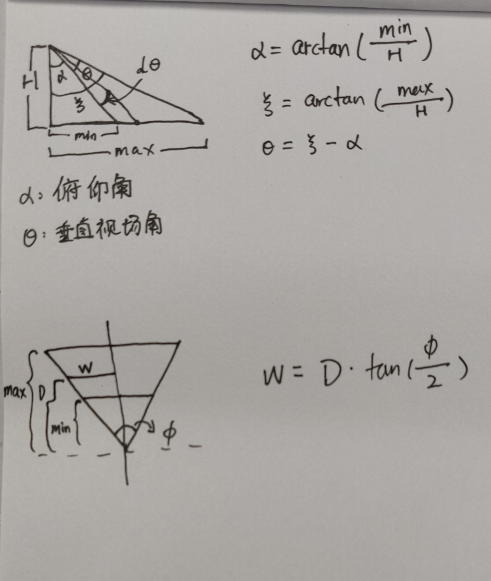 H
α
θ
dθ
ξ
min
max
α = arctan(min/H)
ξ = arctan(max/H)
θ = ξ - α
α: 俯仰角
θ: 垂直视场角
max
D
W
min
ϕ
W = D · tan(ϕ/2)